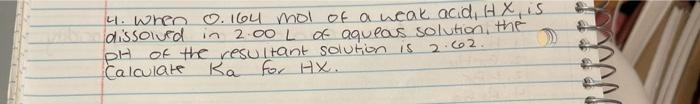 4. When 0.164 mol of a weak acid, HX, is
dissolved in 2.00 L of aqueous solution, the
pH of the resultant solution is 2.62.
Calculate Ka for HX.